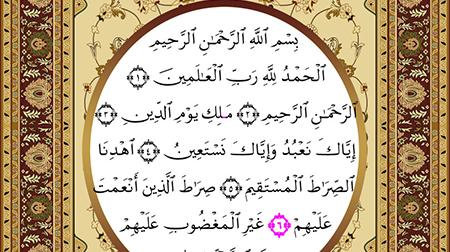 بِسْمِ اللَّهِ الرَّحْمَٰنِ الرَّحِيمِ
الْحَمْدُ لِلَّهِ رَبِّ الْعَٰلَمِينَ ﴿١﴾
الرَّحْمَٰنِ الرَّحِيمِ ﴿٢﴾ مَٰلِكِ يَوْمِ الدِّينِ ﴿٣﴾
إِيَّاكَ نَعْبُدُ وَإِيَّاكَ نَسْتَعِينُ ﴿٤﴾ اهْدِنَا
الصِّرَاطَ الْمُسْتَقِيمَ ﴿٥﴾ صِرَاطَ الَّذِينَ أَنْعَمْتَ
عَلَيْهِمْ ﴿٦﴾ غَيْرِ الْمَغْضُوبِ عَلَيْهِمْ